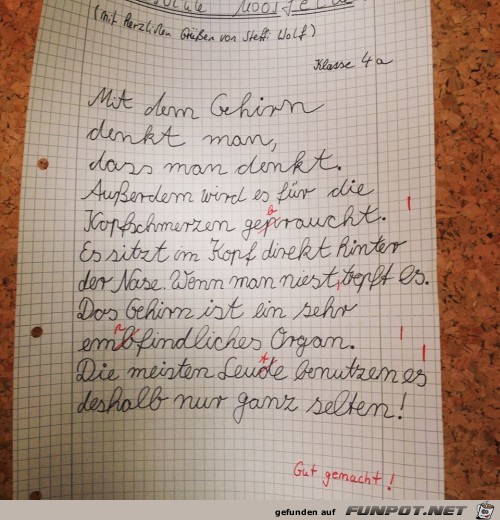 (mit herzlichen Grüßen von Steffi Wolf)
Klasse 4a
Mit dem Gehirn
denkt man,
dass man denkt.
Außerdem wird es für die
b
Kopfschmerzen gepraucht.
Es sitzt im Kopf direkt hinter
der Nase. Wenn man niest, tropft es.
Das Gehirn ist ein sehr
embfindliches Organ.
t
Die meisten Leude benutzen es
deshalb nur ganz selten!
Gut gemacht!
gefunden auf FUNPOT.NET